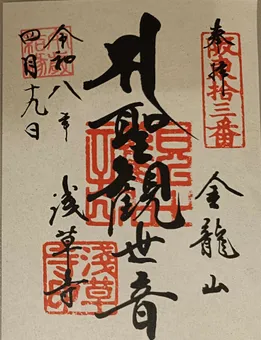 奉拝
坂東拾三番
聖観世音
金龍山
浅草寺
令和八年
四月十九日